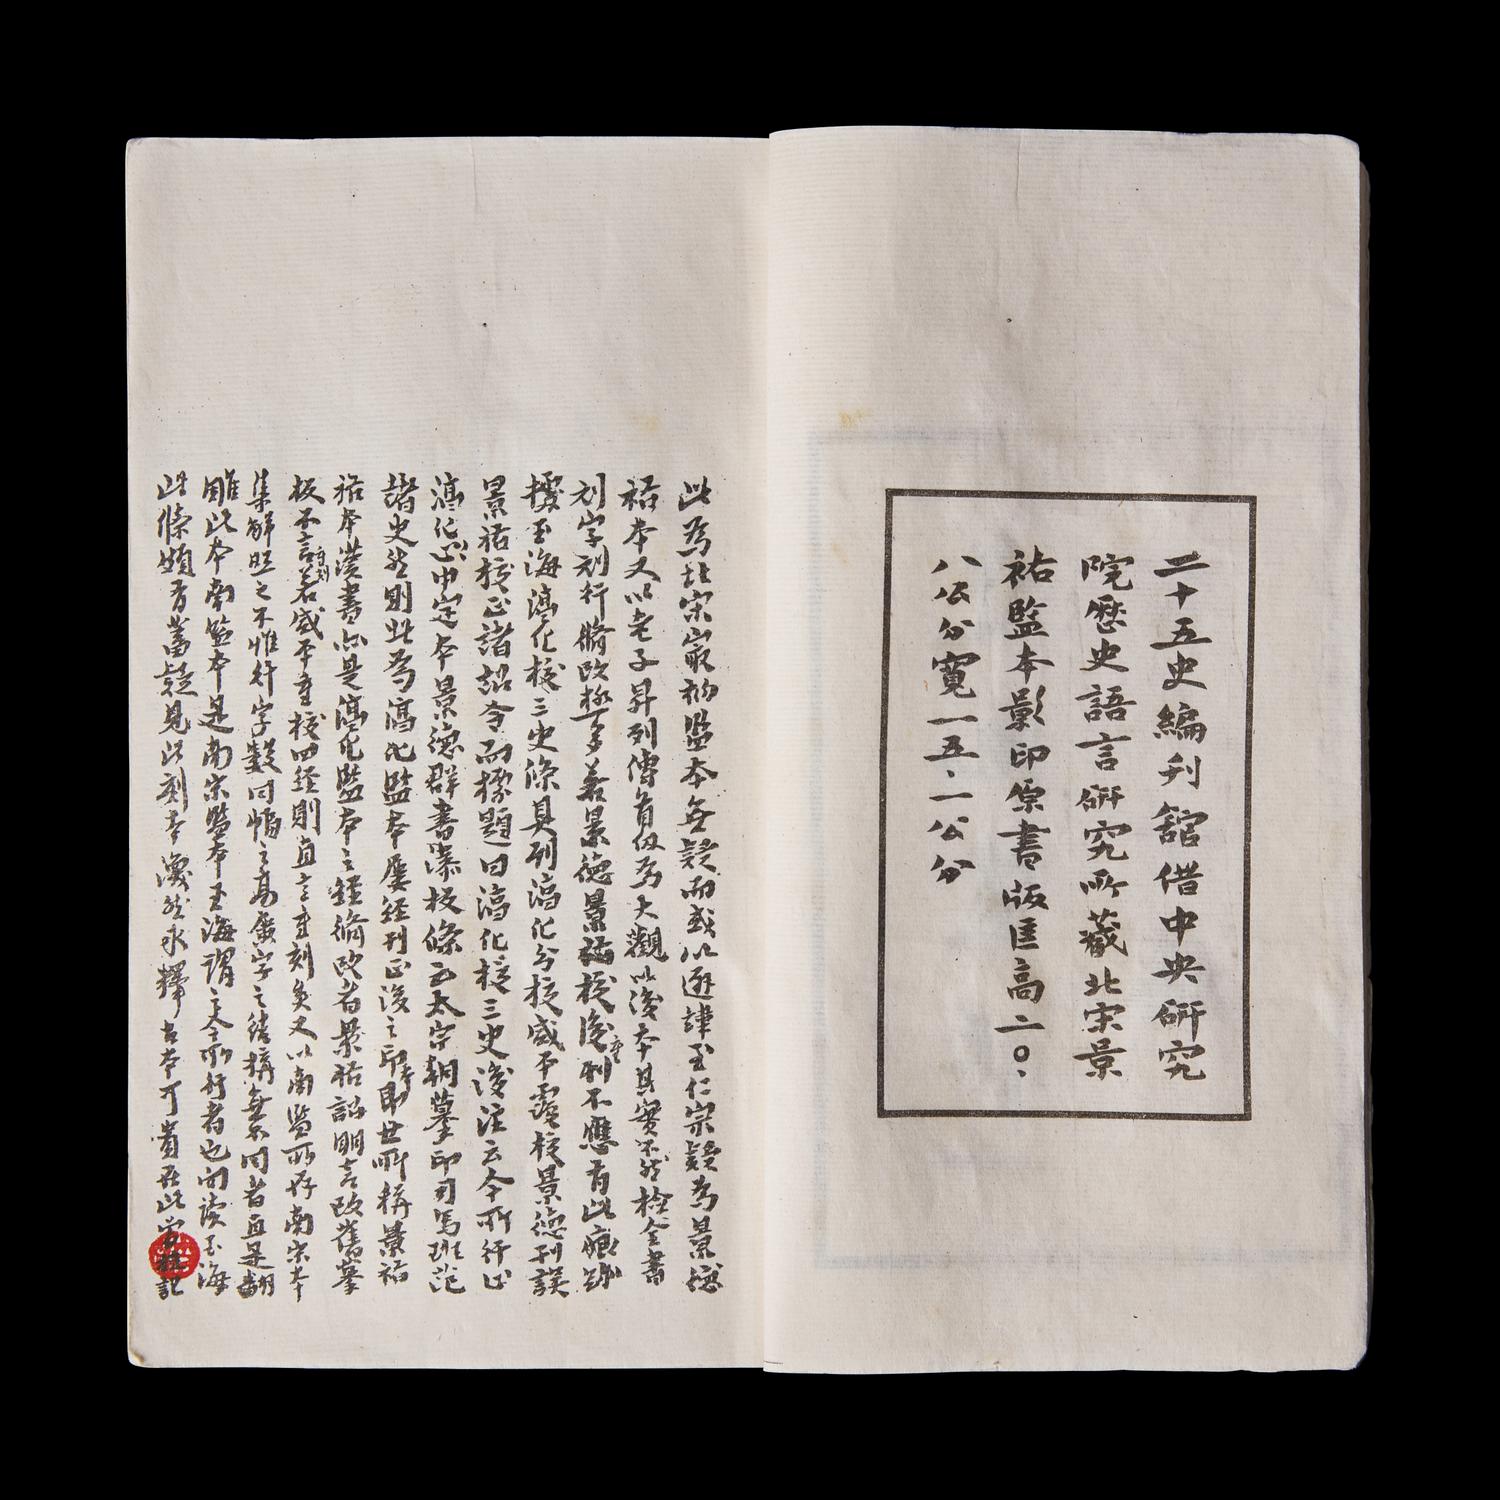 二十五史編刊館借中央研究
院歷史語言研究所藏北宋景
祐監本影印原書版匡高二〇·
八公分寬一五·一公分
此為北宋最初監本無疑而或以避諱至仁宗疑為景德
祐本又以老子昇列傳首似為大觀以後本其實不然檢全書
刻字刻行脩改極多若景德景祐校後重刊不應有此痕跡
據玉海淳化校三史條具列淳化分校咸平覆校景德刊誤
景祐校正諸詔令而標題曰淳化校三史後注云今所行止
淳化中定本景德群書漆板條云太宗朝摹印司馬班范
諸史然則此為淳化監本屢經刊正後之印本即世所稱景祐
祐本漢書亦是淳化監本之經脩改者景祐詔明言改舊摹
板不言重刻若咸平重校四經則直言重刻矣又以南監所存南宋本
集解照之不惟行字數同幅之高廣字之結構無不同者直是翻
雕此本南監本是南宋監本玉海謂之今所行者也閒讀玉海
此條頗有蓄疑見此刻本渙然氷釋古本可貴在此 記